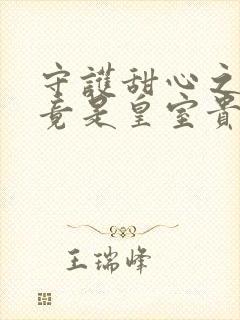 守護甜心之
竟是皇室貴
王瑞峰